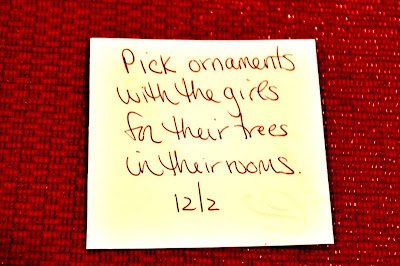 Pick ornaments
with the girls
for their trees
in their rooms.
12/2